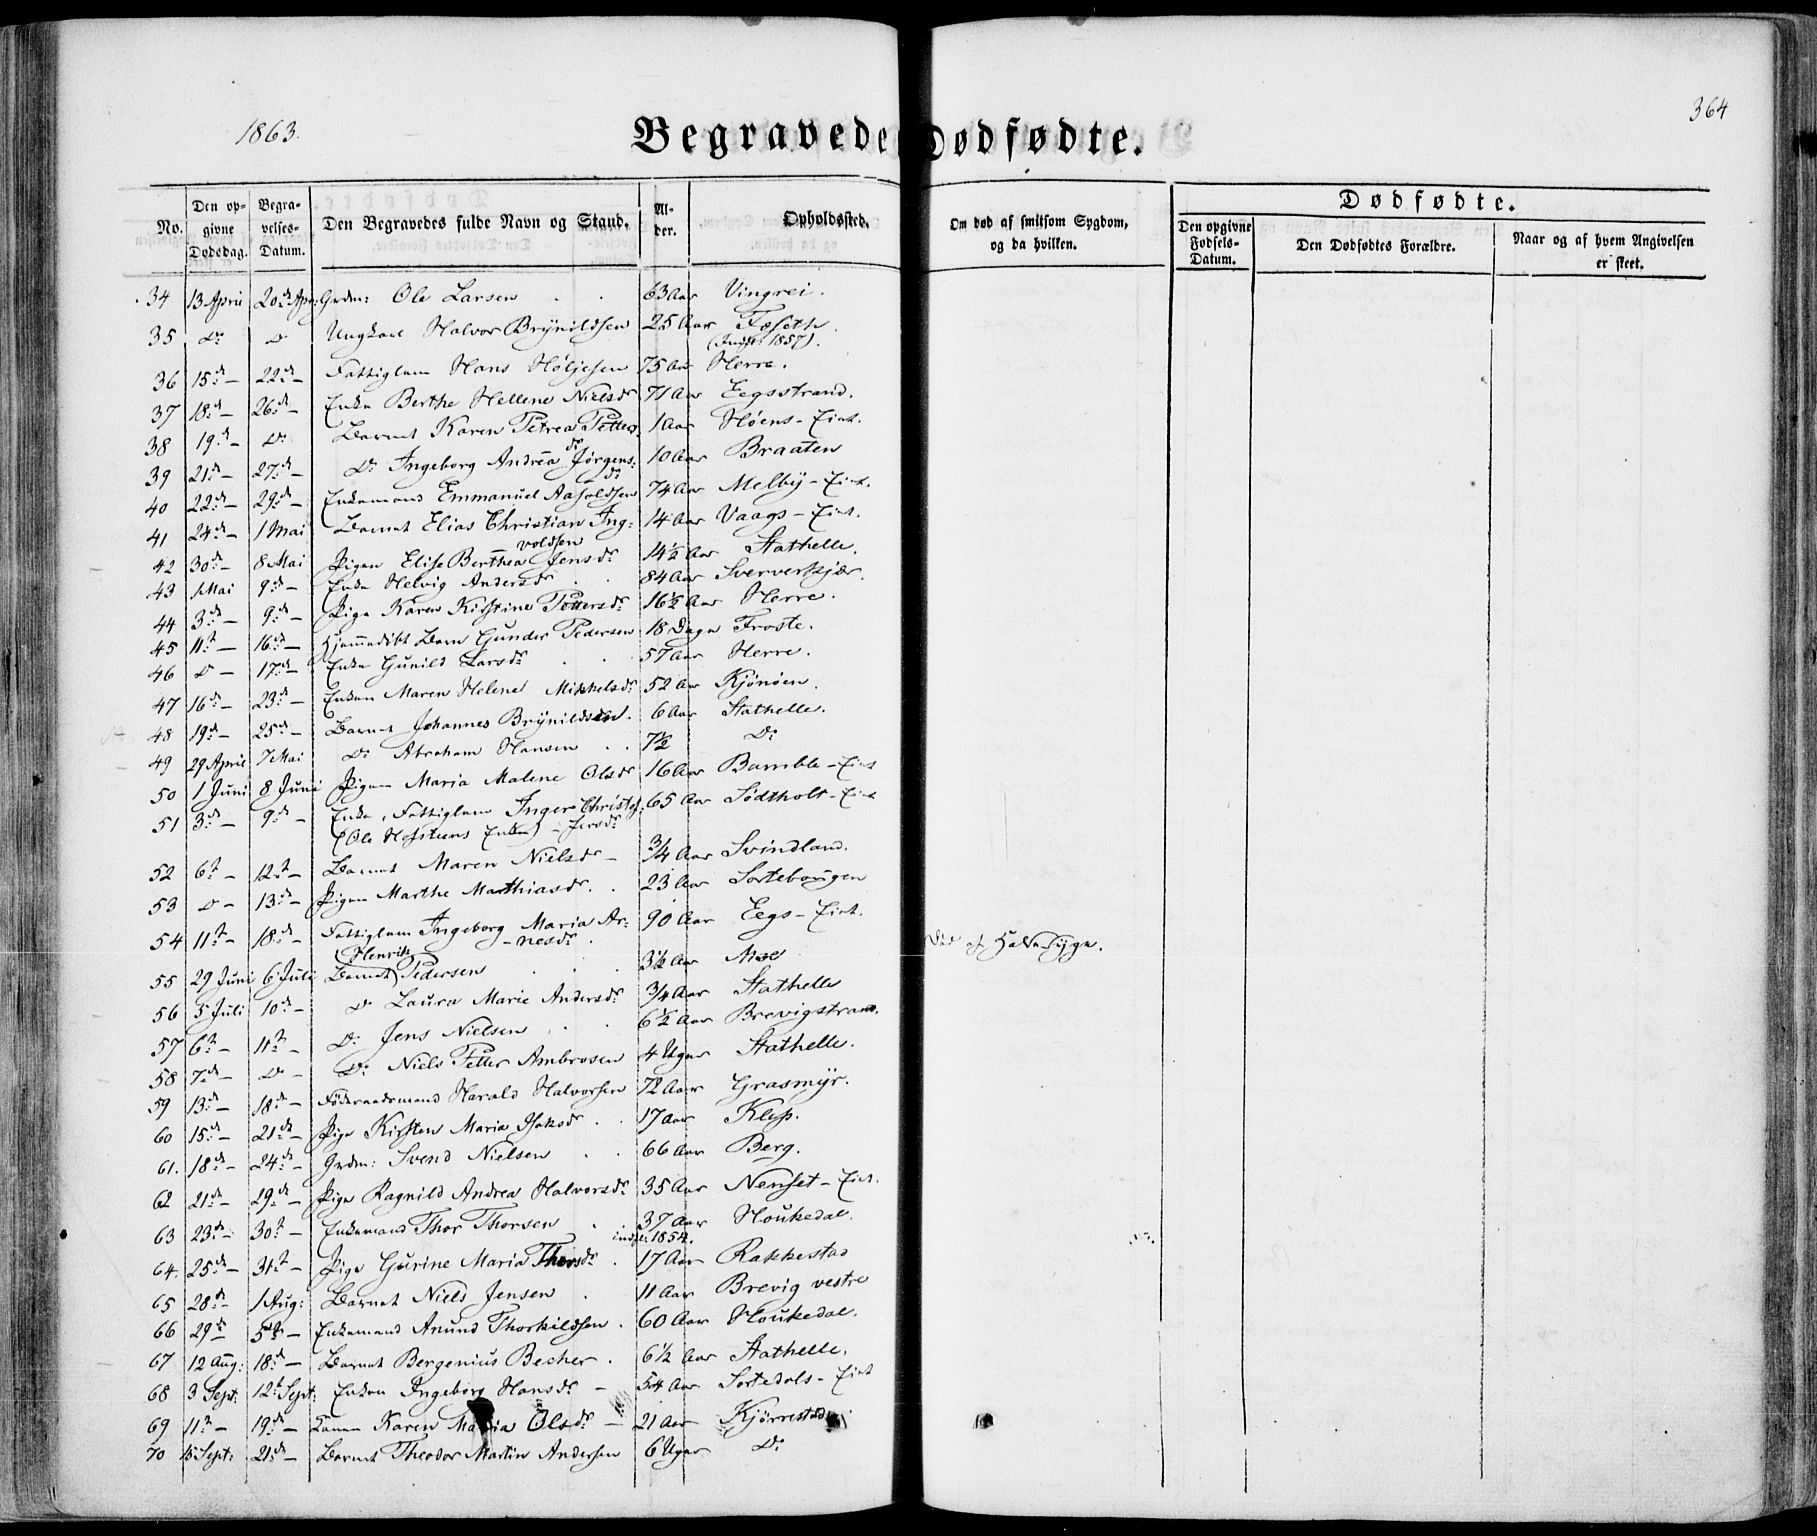 1863.
364
Begravede
Dødfødte.
No.
Den op-
givne
Dødsdag.
Begra-
velses-
Datum.
Den Begravedes fulde Navn og Stand.
Al-
der.
Opholdssted.
Om død af smitsom Sygdom,
og da hvilken.
Dødfødte.
Den opgivne
Fødsels-
Datum.
Den Dødfødtes Forældre.
Naar og af hvem Angivelsen
er skeet.
34 13 April 20de Apr: Grdm: Ole Larsen 63 Aar Vingrei.
35 Do D Ungkarl Halvor Brynildsen 25 Aar Fosseth.
(Indf: 1857).
36 15de – 22de – Fattiglem Hans Høljesen 75 Aar Herre.
37 18de – 26de – Enke Berthe Hellene Nielsdr 71 Aar Eegsstrand.
38 19de – Do Barnet Karen Petrea Petters: 1 Aar Høens-Eiet.
dr
39 21de – 27de – Do Ingeborg Andrea Jørgens: 10 Aar Braaten
dr
40 22de – 29de – Enkemand Emmanuel Aasoldsen 74 Aar Melby-Eiet.
41 24de – 1 Mai Barnet Elias Christian Ing: 14 Aar Vaags-Eiet.
voldsen
42 30de – 8 Mai Pigen Elise Berthea Jensdr 14½ Aar Stathelle.
43 1 Mai 9de – Enke Helvig Andersdr 84 Aar Sververkjær.
44 3de – 9de – Pige Karen Kirstine Pettersdr 16½ Aar Herre.
45 11te – 16de – Hjemmedøbt Barn Gunder Pedersen 18 Dage Froste.
46 D – 17de – Enke Gunild Larsdr 57 Aar Herre.
47 16de – 23de – Enken Maren Helene Mikkelsdr 52 Aar Kjønøen.
48 19de – 25de – Barnet Johannes Brynildsen. 6 Aar Stathelle.
49 29 April 7 Mai Do Abraham Hansen 7½ Do
50 1 Juni 8 Juni Pigen Maria Malene Olsdr 16 Aar Bamble-Eiet
51 3de – 9de – Enke, Fattiglem Inger Christof: 65 Aar Sødtholt-Eiet
(Ole Hofstuens Enke) – Jensdr
52 6te – 12te – Barnet Maren Nielsdr – ¾ Aar Svindland.
53 D – 13de – Pigen Marthe Mathiasdr. 23 Aar Sortebougen
54 11te – 18de – Fattiglem Ingeborg Maria Ar: 90 Aar Eegs-Eiet.
-nesdr.
(Henrik
55 29 Juni 6 Juli Barnet Pedersen 3½ Aar Moe Død af Halssyge.
56 5 Juli 10de – D Laura Marie Andersdr ¾ Aar Stathelle
57 6te – 11te – Do Jens Nielsen 6½ Aar Brevigstrand.
58 7de – D – Do Niels Petter Ambrosen 4 Uger Stathelle.
59 13de – 18de – Føderaadsmand Harald Halvorsen 72 Aar Grasmyr.
60 15de – 21de – Pige Kirsten Maria Isaksdr 17 Aar Klep.
61. 18de – 24de – Grdm: Svend Nielsen 66 Aar Berg.
62 21de – 29de – Pige Ragnild Andrea Halvorsdr 35 Aar Nenset-Eiet.
63 23de – 30te – Enkemand Thor Thorsen 37 Aar Houkedal.
indf: 1854.
64. 25de – 31te – Pige Gurine Maria Thorsdr. 17 Aar Rakkestad
65 28de – 1 Aug: Barnet Niels Jensen 11 Aar Brevig vestre
66 29de 5te – Enkemand Anund Thorkildsen. 60 Aar Houkedal.
67 12 Aug: 18de – Barnet Bergenius Becher. 6½ Aar Stathelle.
68 3 Sept: 12te Sept: Enken Ingeborg Hansdr – 54 Aar Sortedals-Eiet
69 11te – 19de – Karen Maria Olsdr – 21 Aar Kjørrestad
70 15 Sept: 21de – Barnet Theodor Martin Andersen 6 Uger Do